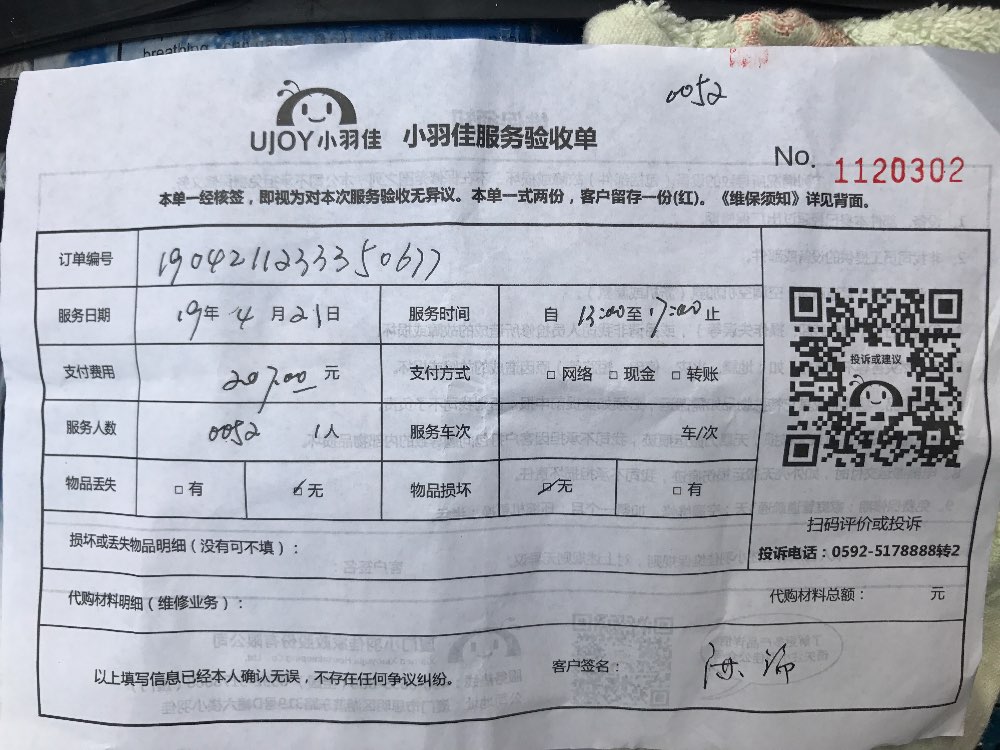 breathing
0052
UJOY小羽佳 小羽佳服务验收单
No. 1120302
本单一经核签，即视为对本次服务验收无异议。本单一式两份，客户留存一份(红)。《维保须知》详见背面。
订单编号 19042112333350677
服务日期 19年 4 月 21日 服务时间 自 13:00至17:00止
支付费用 207.00 元 支付方式 □ 网络 □ 现金 □ 转账
投诉或建议
服务人数 0052 1人 服务车次 车/次
物品丢失 □ 有 ☑ 无 物品损坏 ☑ 无 □ 有
损坏或丢失物品明细（没有可不填）：
扫码评价或投诉
投诉电话：0592-5178888转2
代购材料明细（维修业务）： 代购材料总额： 元
以上填写信息已经本人确认无误，不存在任何争议纠纷。 客户签名：